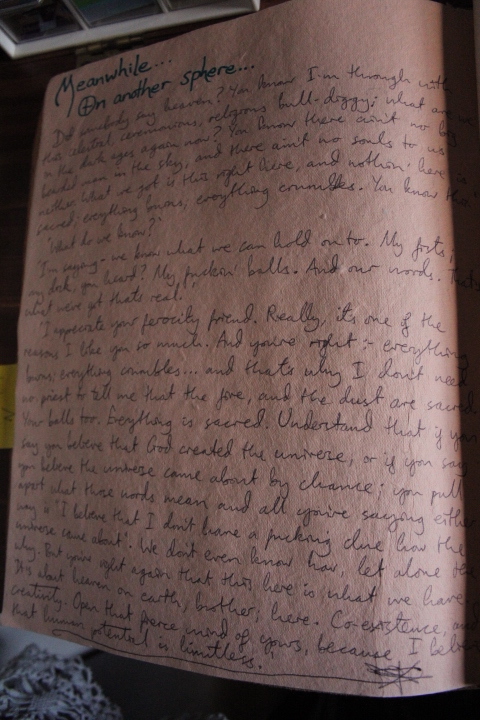 Meanwhile...
On another sphere...
Did somebody say heaven? You know I'm through with
this celestial ceremonious, religious bull-diggy; what are we
in the dark ages again now? You know there ain't no big
bearded man in the sky, and there ain't no souls to us
neither. What we got is this right here, and nothin' here is
sacred: everything burns, everything crumbles. You know this.
'What do we know?'
'I'm saying - we know what we can hold on to. My fists;
my dick, you heard? My fuckin' balls. And our words. That's
what we've got thats real.'
'I appreciate your ferocity friend. Really, it's one of the
reasons I like you so much. And you're right :- everything
burns; everything crumbles... and that's why I don't need
no priest to tell me that the fire, and the dust are sacred
Your balls too. Everything is sacred. Understand that if you
say you believe that God created the universe, or if you say
you believe the universe came about by chance; you pull
apart what those words mean and all you're saying either
way is 'I believe that I don't have a fucking clue how the
universe came about'. We don't even know how, let alone the
why. But you're right again that this here is what we have.
It's about heaven on earth, brother; here. Co-existence, and
creativity. Open that fierce mind of yours, because I believe
that human potential is limitless.'